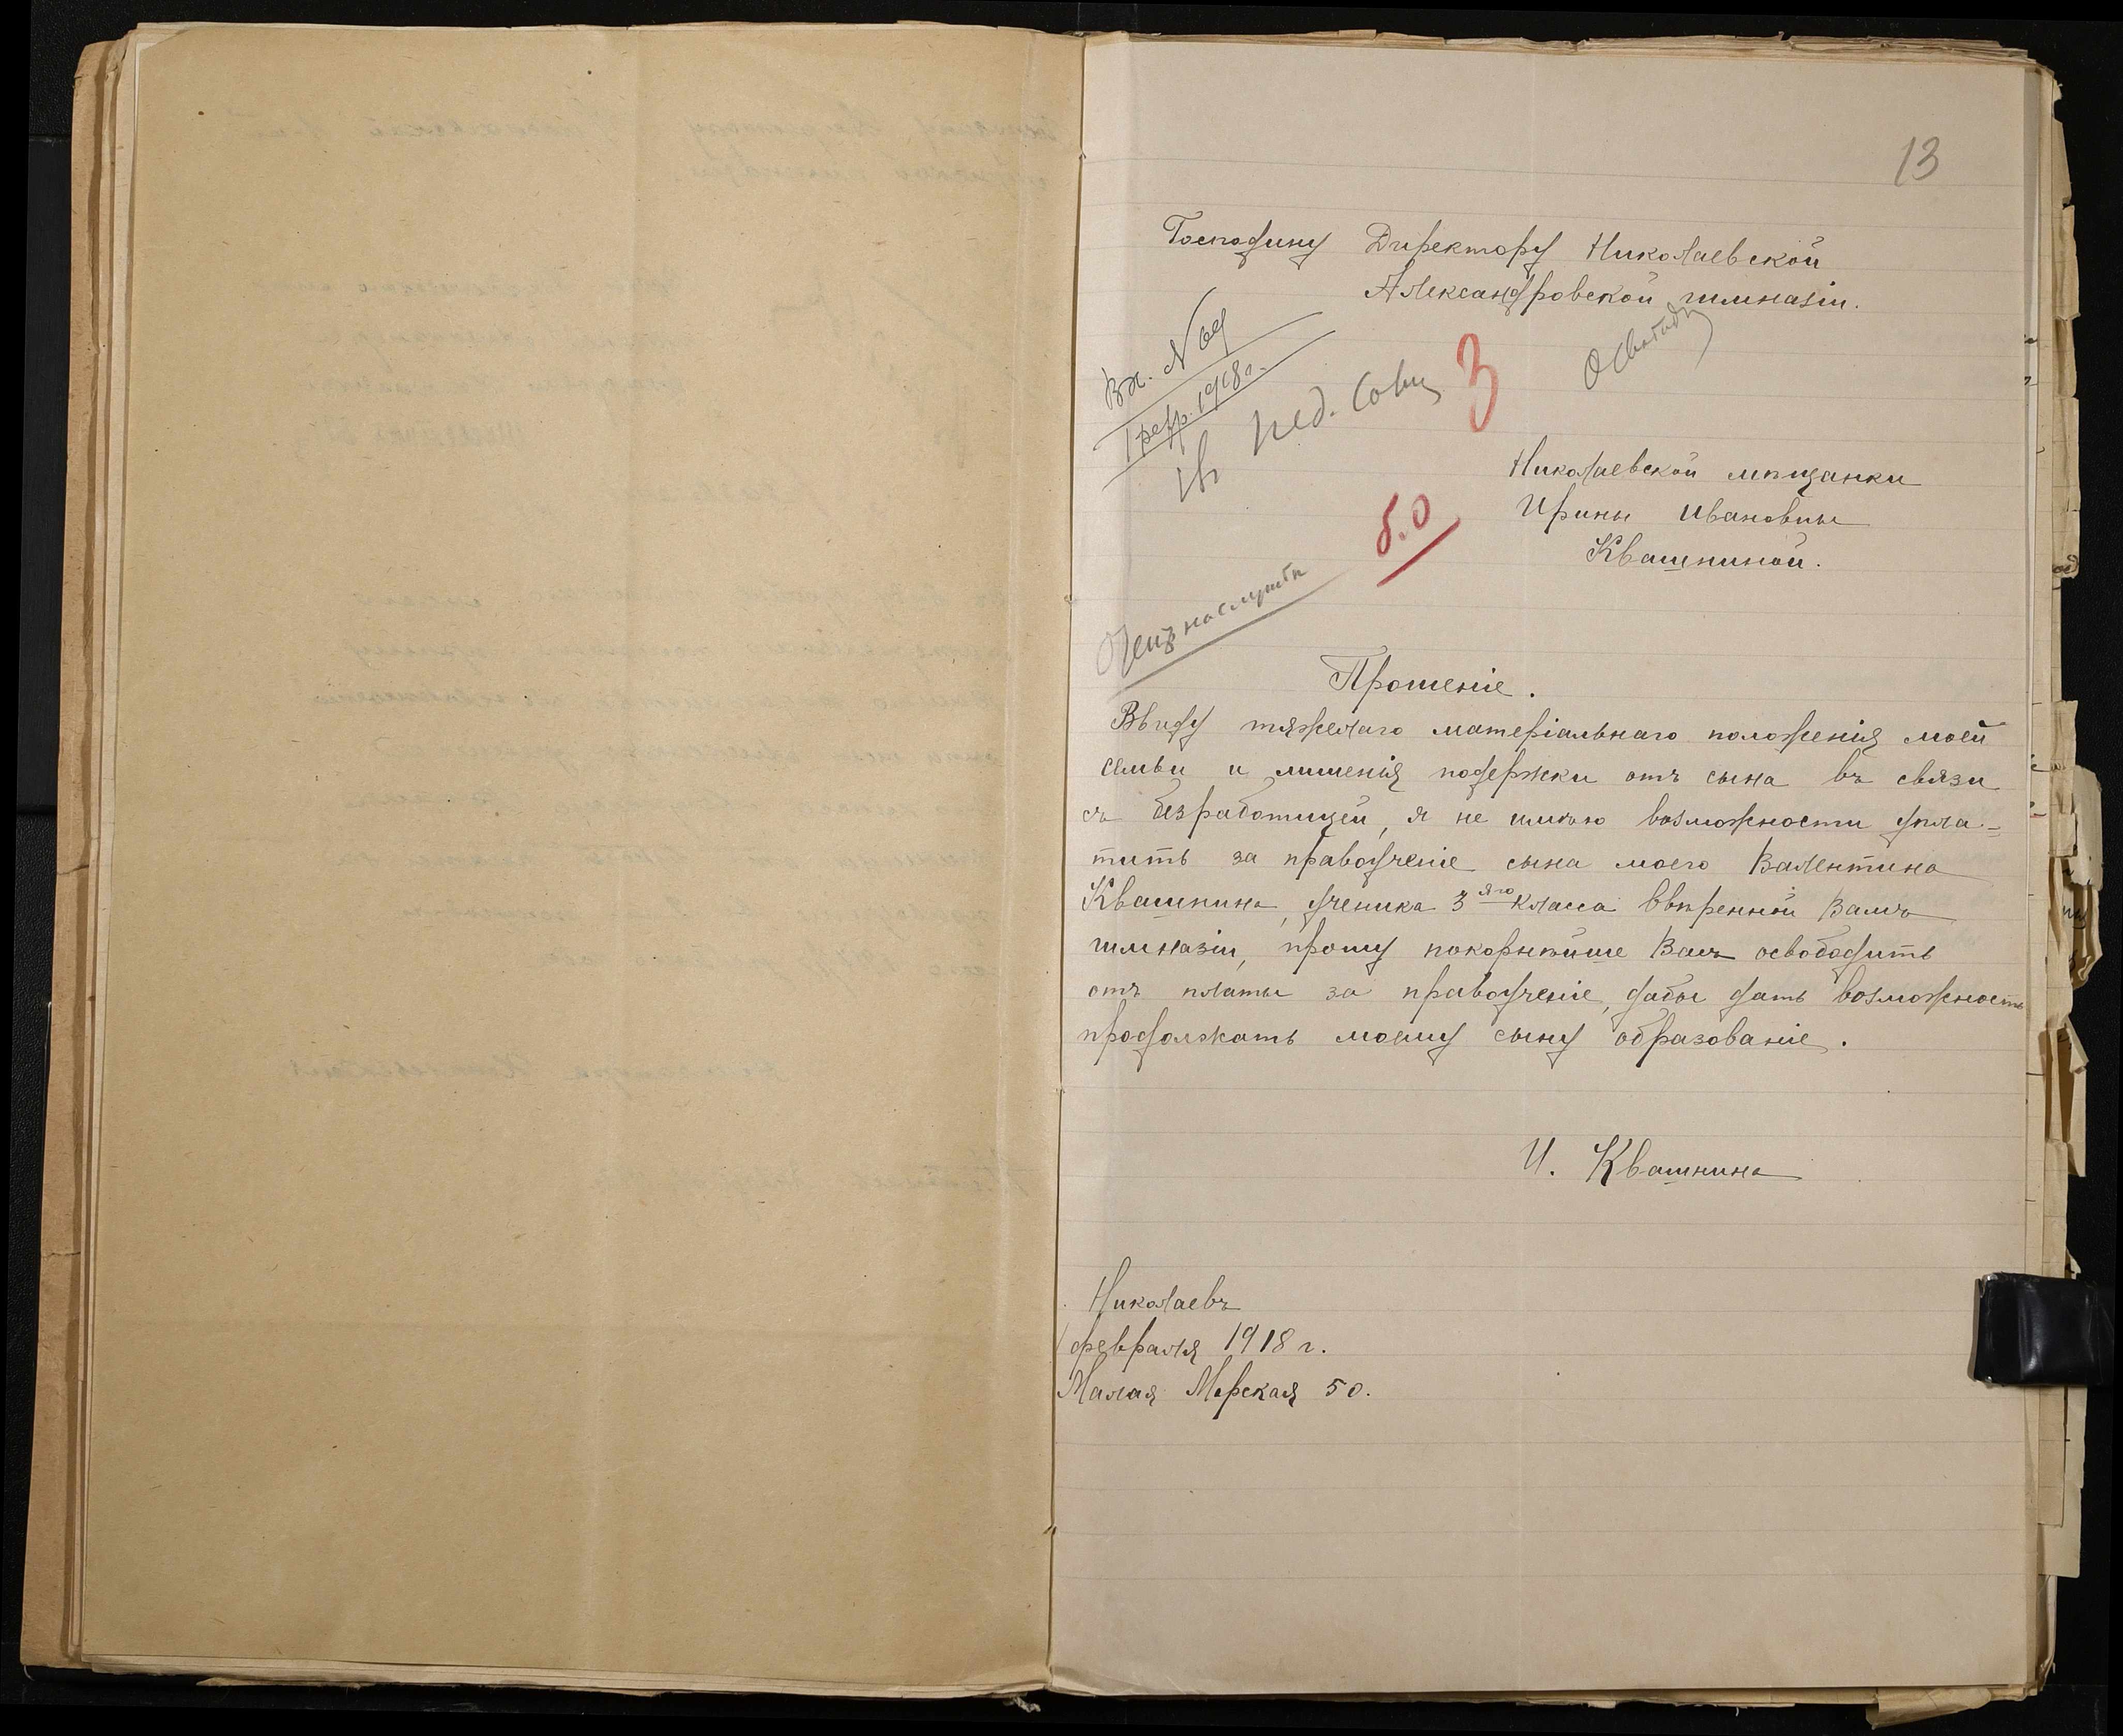 13
Господину Директору Николаевской
Александровской гимназіи.
Вх. № 69
1 февр. 1918 г.
Въ пед. Сов.
3
Освобод.
Николаевской мѣщанки
Ирины Ивановны
Квашниной.
б.о
Отецъ на службѣ
Прошеніе.
Ввиду тяжелаго матеріальнаго положенія моей
семьи и лишенія подержки отъ сына въ связи
съ безработицей, я не имѣю возможности упла-
тить за правоученіе сына моего Валентина
Квашнина, ученика 3яго класса ввѣренной Вамъ
гимназіи, прошу покорнѣйше Васъ освободить
отъ платы за правоученіе, дабы дать возможность
продолжать моему сыну образованіе.
И. Квашнина
Николаевъ
1 февраля 1918 г.
Малая Морская 50.